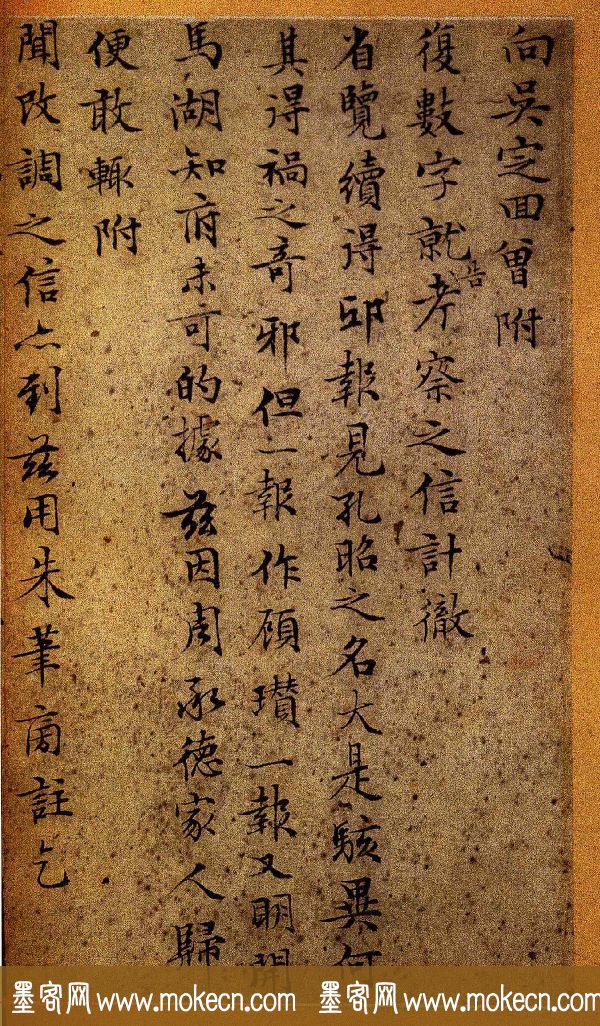 向吳定回曾附
復數字就考察之信計徹
告
省覽續得邸報見孔昭之名大是駭異何
其得禍之奇邪但一報作顧瓚一報又明開
馬湖知府未可的據茲因周承德家人歸
便敢輒附
聞改調之信亦到茲用朱筆商註乞
墨客网 www.mokecn.com 墨客网 www.mokecn.com